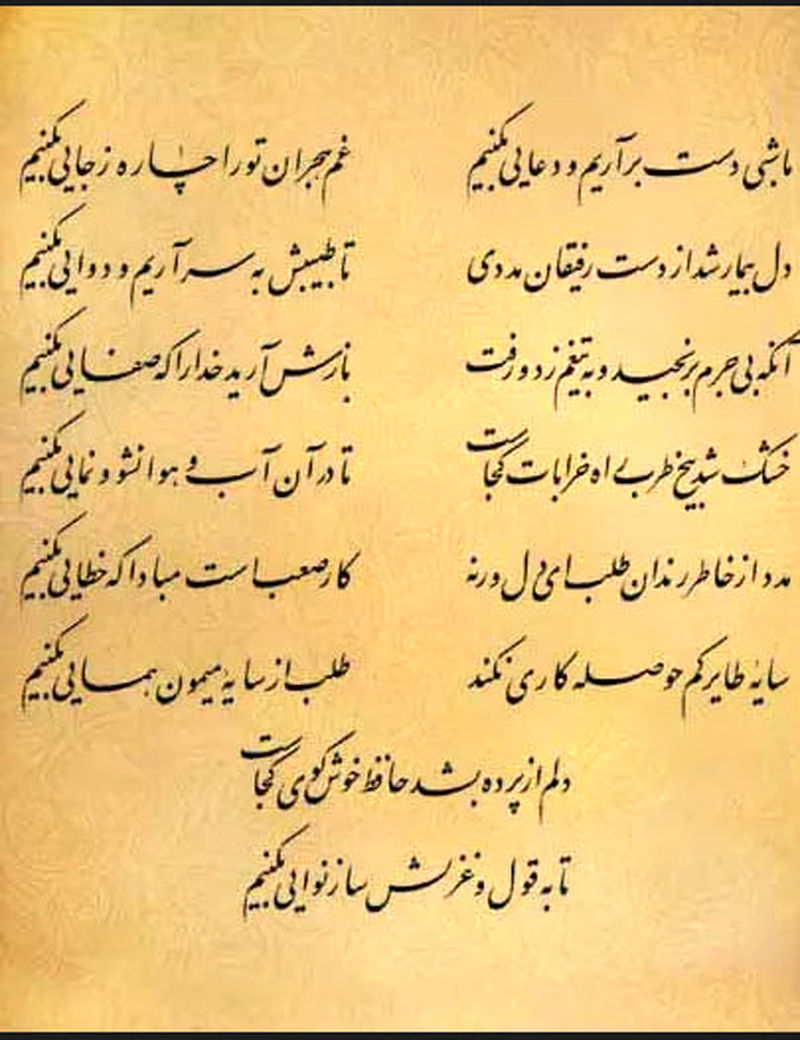 ما شبی دست برآریم و دعایی بکنیم    غم هجران تو را چاره ز جایی بکنیم
دل بیمار شد از دست رفیقان مددی    تا طبیبش به سر آریم و دوایی بکنیم
آنکه بی جرم برنجید و به تیغم زد و رفت    بازش آرید خدا را که صفایی بکنیم
خشک شد بیخ طرب راه خرابات کجاست    تا در آن آب و هوا نشو و نمایی بکنیم
مدد از خاطر رندان طلب ای دل ورنه    کار صعب است مبادا که خطایی بکنیم
سایهٔ طایر کم حوصله کاری نکند    طلب از سایهٔ میمون همایی بکنیم
دلم از پرده بشد حافظ خوش گوی کجاست
تا به قول و غزلش ساز نوایی بکنیم